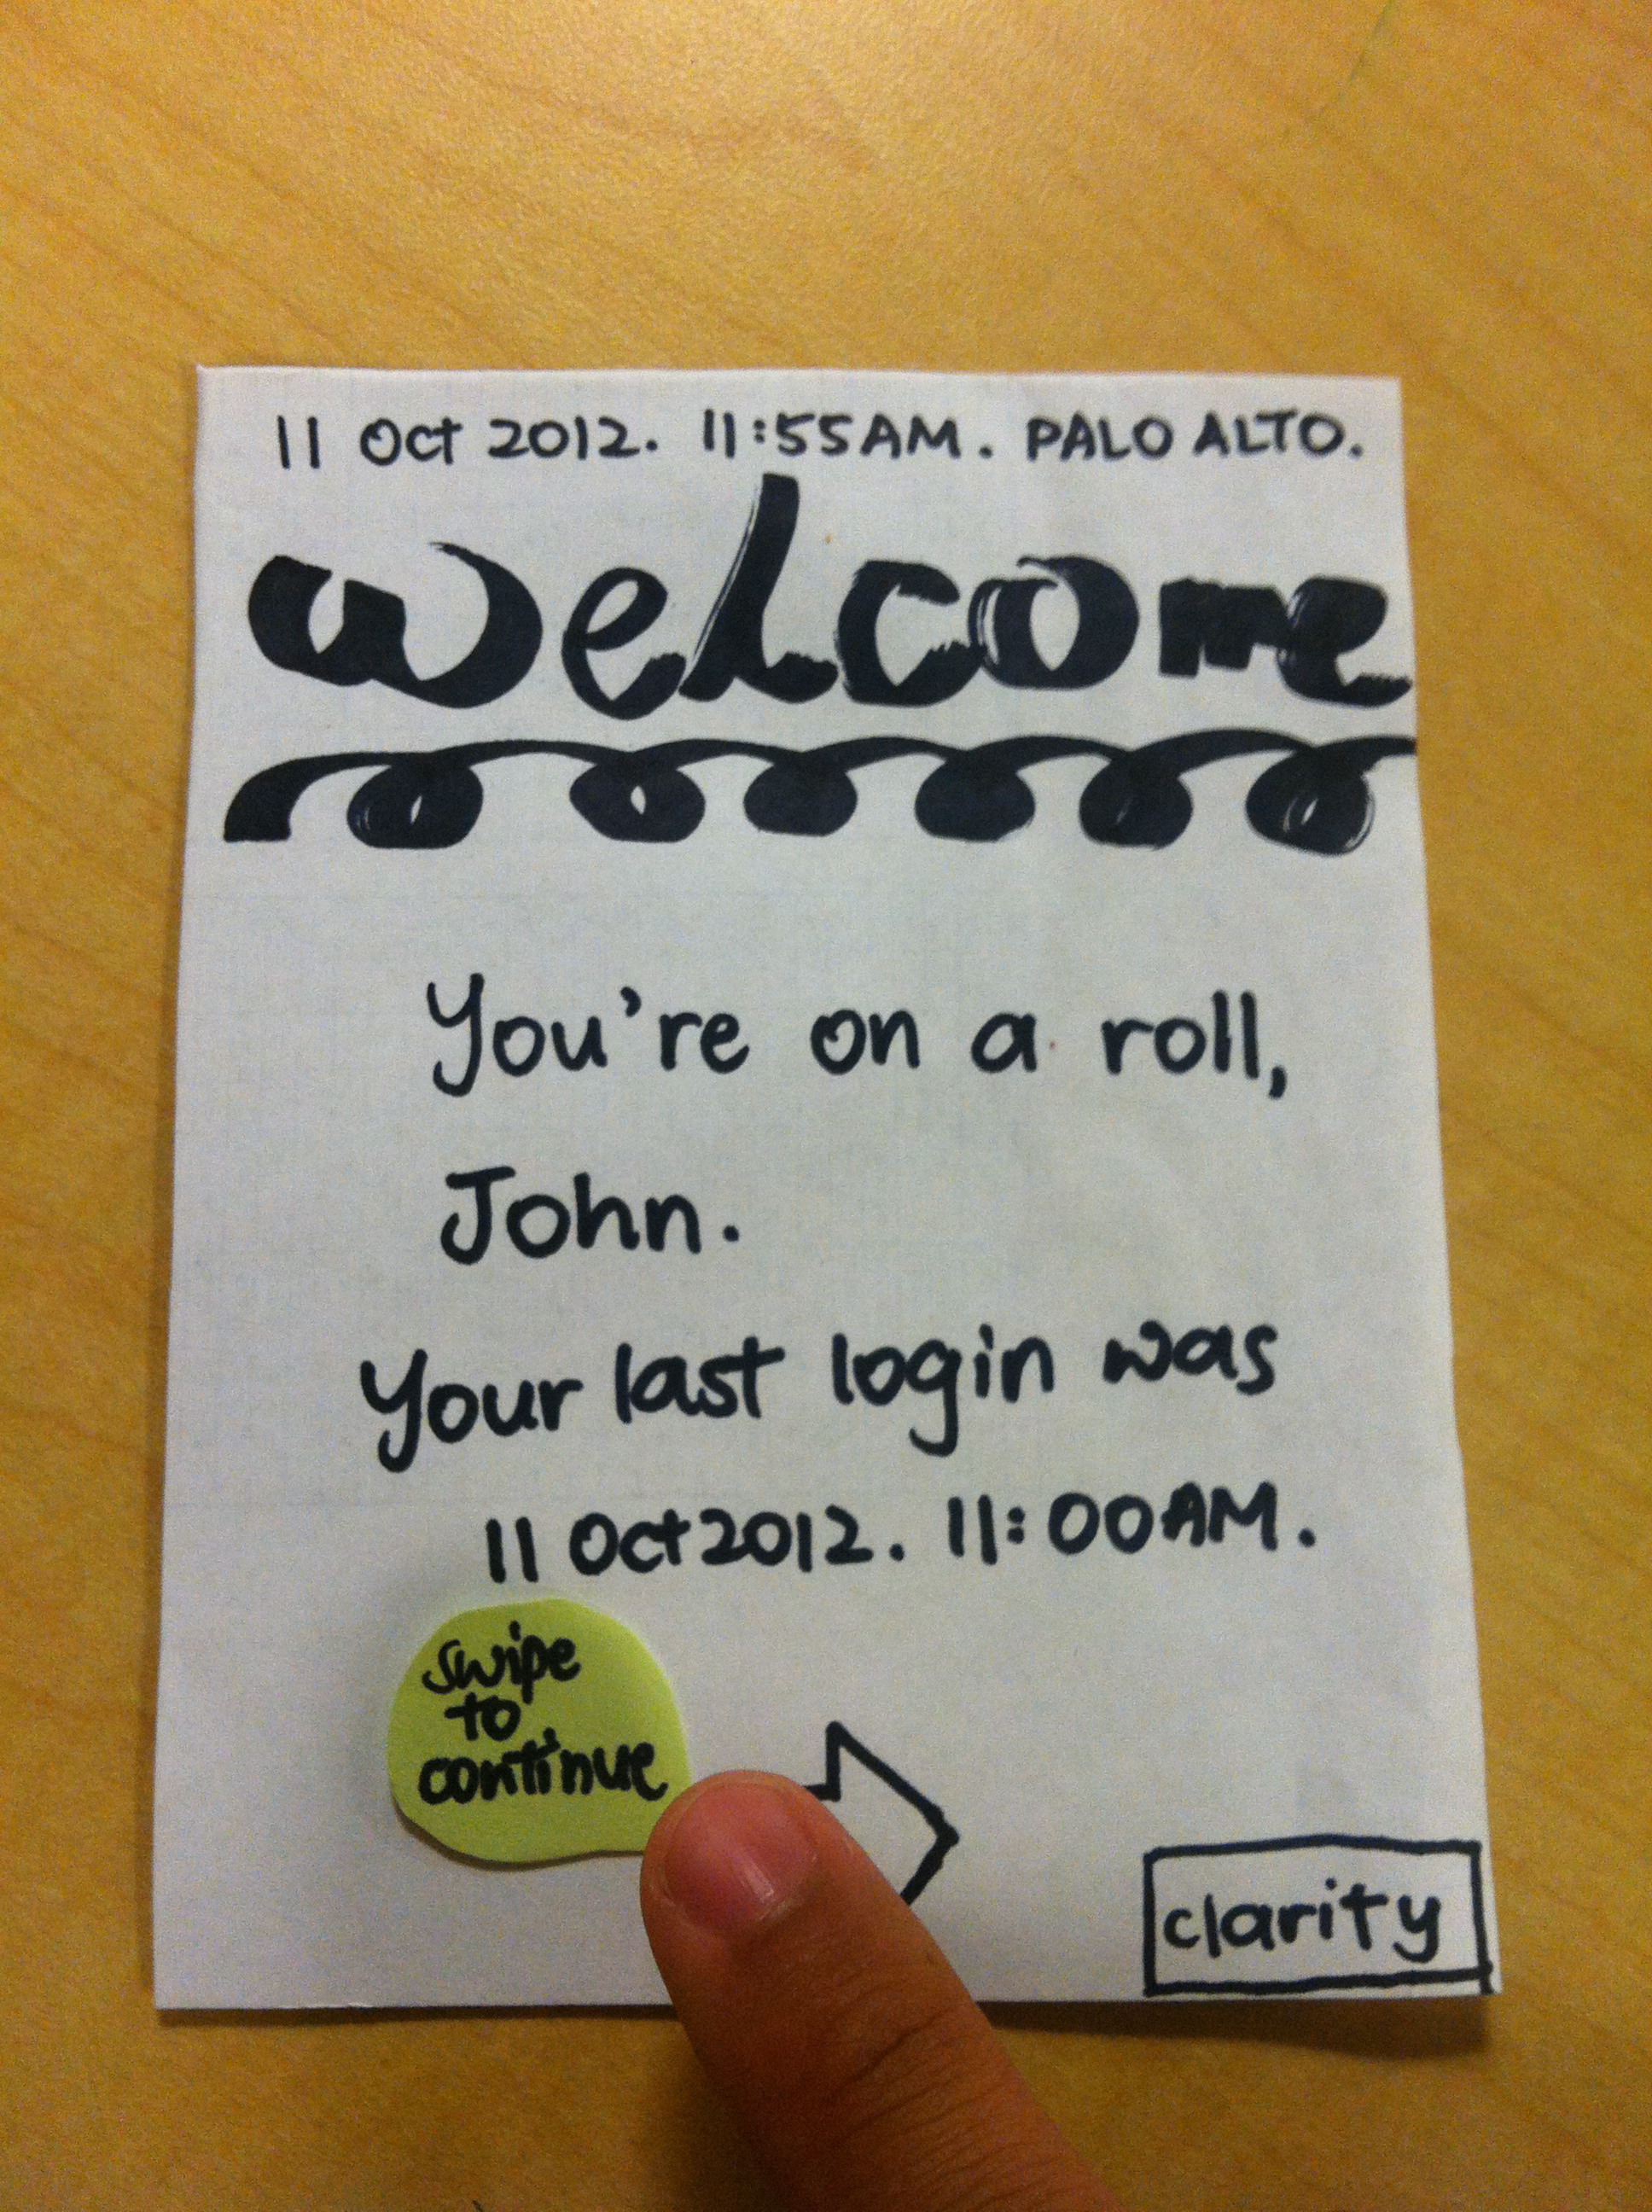 11 Oct 2012. 11:55AM. PALO ALTO.
welcome
You're on a roll,
John.
Your last login was
11 Oct 2012. 11:00AM.
swipe
to
continue
clarity